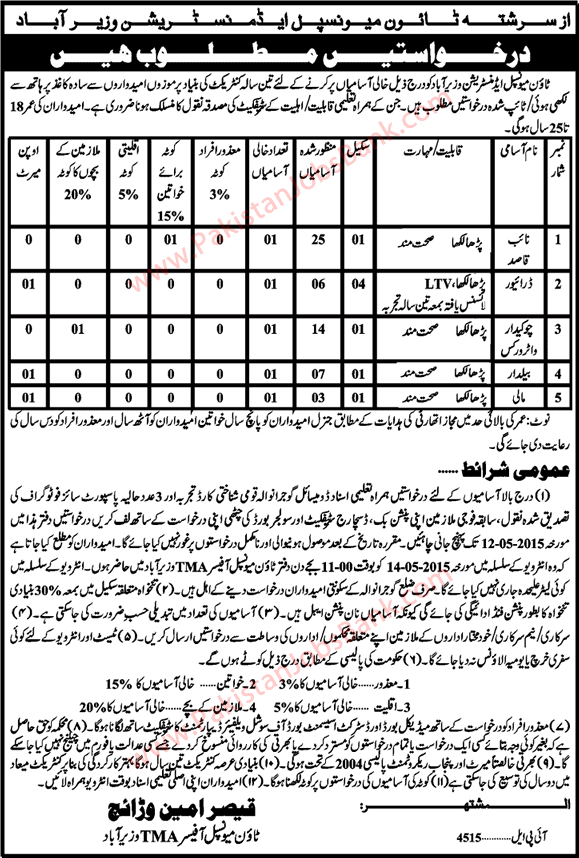 از سرشتہ ٹاؤن میونسپل ایڈمنسٹریشن وزیر آباد
درخواستیں مطلوب ہیں
ٹاؤن میونسپل ایڈمنسٹریشن وزیر آباد کو درج ذیل خالی آسامیاں پر کرنے کے لئے تین سالہ کنٹریکٹ کی بنیاد پر موزوں امیدواروں سے سادہ کاغذ پر ہاتھ سے
لکھی ہوئی/ٹائپ شدہ درخواستیں مطلوب ہیں۔ جن کے ہمراہ تعلیمی قابلیت/اہلیت کے سرٹیفکیٹ کی مصدقہ نقول کا منسلک ہونا ضروری ہے۔ امیدواران کی عمر 18
تا 25 سال ہوگی۔
نمبر شمار | نام آسامی | قابلیت/مہارت | سکیل | منظور شدہ آسامیاں | تعداد خالی آسامیاں | معذور افراد کوٹہ 3% | کوٹہ برائے خواتین 15% | اقلیتی کوٹہ 5% | ملازمین کے بچوں کا کوٹہ 20% | اوپن میرٹ
1 | نائب قاصد | پڑھا لکھا صحت مند | 01 | 25 | 01 | 0 | 01 | 0 | 0 | 0
2 | ڈرائیور | پڑھا لکھا، LTV لائسنس یافتہ بمعہ تین سالہ تجربہ | 04 | 06 | 01 | 0 | 0 | 0 | 0 | 01
3 | چوکیدار واٹر ورکس | پڑھا لکھا صحت مند | 01 | 14 | 01 | 0 | 0 | 0 | 01 | 0
4 | بیلدار | پڑھا لکھا صحت مند | 01 | 07 | 01 | 0 | 0 | 0 | 0 | 01
5 | مالی | پڑھا لکھا صحت مند | 01 | 03 | 01 | 0 | 0 | 0 | 0 | 01
نوٹ: عمر کی بالائی حد میں مجاز اتھارٹی کی ہدایات کے مطابق جنرل امیدواران کو پانچ سال خواتین امیدواران کو آٹھ سال اور معذور افراد کو دس سال کی
رعایت دی جائے گی۔
عمومی شرائط ......
(۱) درج بالا آسامیوں کے لئے درخواستیں ہمراہ تعلیمی اسناد ڈومیسائل گوجرانوالہ قومی شناختی کارڈ تجربہ اور 3 عدد حالیہ پاسپورٹ سائز فوٹوگراف کی
تصدیق شدہ نقول، سابقہ فوجی ملازمین اپنی پنشن بک، ڈسچارج سرٹیفکیٹ اور سولجر بورڈ کی چٹھی اپنی درخواست کے ساتھ لف کریں درخواستیں دفتر ہذا میں
مورخہ 12-05-2015 تک پہنچ جانی چاہئیں۔ مقررہ تاریخ کے بعد موصول ہونیوالی اور نامکمل درخواستوں پر غور نہیں کیا جائے گا۔ امیدواران کو مطلع کیا جاتا ہے
کہ وہ انٹرویو کے سلسلہ میں مورخہ 14-05-2015 کو بوقت 11-00 بجے دن دفتر ٹاؤن میونسپل آفیسر TMA وزیر آباد میں حاضر ہوں۔ انٹرویو کے سلسلہ میں
کوئی لیٹر علیحدہ جاری نہیں کیا جائے گا۔ صرف ضلع گوجرانوالہ کے سکونتی امیدواران درخواست دینے کے اہل ہیں۔ (۲) تنخواہ متعلقہ سکیل میں بمعہ 30% بنیادی
تنخواہ کا بطور پنشن فنڈ ادائیگی کی جائے گی کیونکہ آسامیاں نان پنشن ایبل ہیں۔ (۳) آسامیوں کی تعداد میں تبدیلی حسب ضرورت کی جاسکتی ہے۔ (۴)
سرکاری/نیم سرکاری/خودمختار اداروں کے ملازمین اپنے متعلقہ محکموں/اداروں کی وساطت سے درخواستیں ارسال کریں۔ (۵) ٹیسٹ اور انٹرویو کے لئے کوئی
سفری خرچ یا یومیہ الاؤنس نہ دیا جائے گا۔ (۶) حکومت کی پالیسی کے مطابق درج ذیل کوٹے ہوں گے۔
1۔ معذور ...... خالی آسامیوں کا 3% 2۔ خواتین ...... خالی آسامیوں کا 15%
3۔ اقلیت ...... خالی آسامیوں کا 5% 4۔ ملازمین کے بچے ...... خالی آسامیوں کا 20%
(۷) معذور افراد کو درخواست کے ساتھ میڈیکل بورڈ اور ڈسٹرکٹ اسیسمنٹ بورڈ آف سوشل ویلفیئر ڈیپارٹمنٹ کا سرٹیفکیٹ ساتھ لگانا ہوگا۔ (۸) محکمہ کو حق حاصل
ہے کہ بغیر کوئی وجہ بتائے کسی ایک درخواست یا تمام درخواستوں کو مسترد کردے یا بھرتی کی کارروائی منسوخ کردے جسے کسی عدالت یا فورم میں چیلنج نہیں کیا جاسکے
گا۔ (۹) بھرتی خالصتاً میرٹ اور پنجاب ریکروٹمنٹ پالیسی 2004 کے تحت ہوگی۔ (۱۰) بنیادی عرصہ کنٹریکٹ تین سال ہوگا بہتر کارکردگی کی بنا پر کنٹریکٹ میعاد
میں دو سال کی توسیع کی جاسکتی ہے (۱۱) کوٹہ کی آسامیوں کی درخواستوں پر کوٹہ لکھنا ہوگا۔ (۱۲) امیدواران اپنی اصلی تعلیمی اسناد بوقت انٹرویو ہمراہ لائیں۔
المشتہر
قیصر امین وڑائچ
ٹاؤن میونسپل آفیسر TMA وزیر آباد
آئی پی ایل۔ 4515
www.PakistanJobsBank.com
www.PakistanJobsBank.com